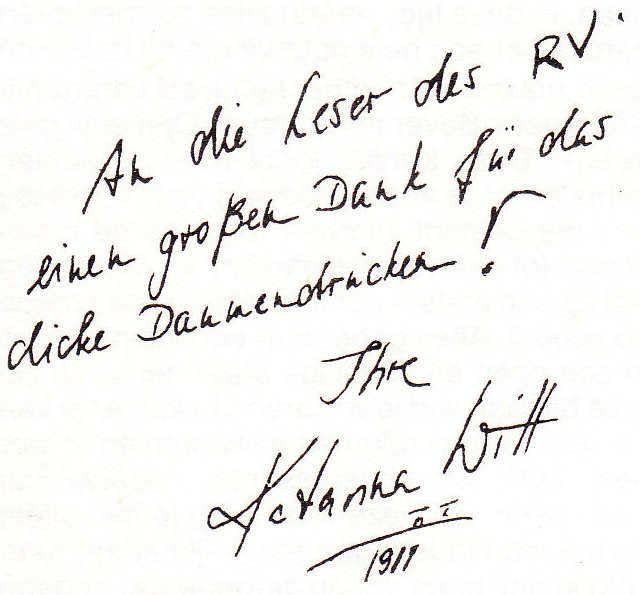 An die Leser des RV.
einen großen Dank für das
dicke Daumendrücken!
Ihre
Katarina Witt